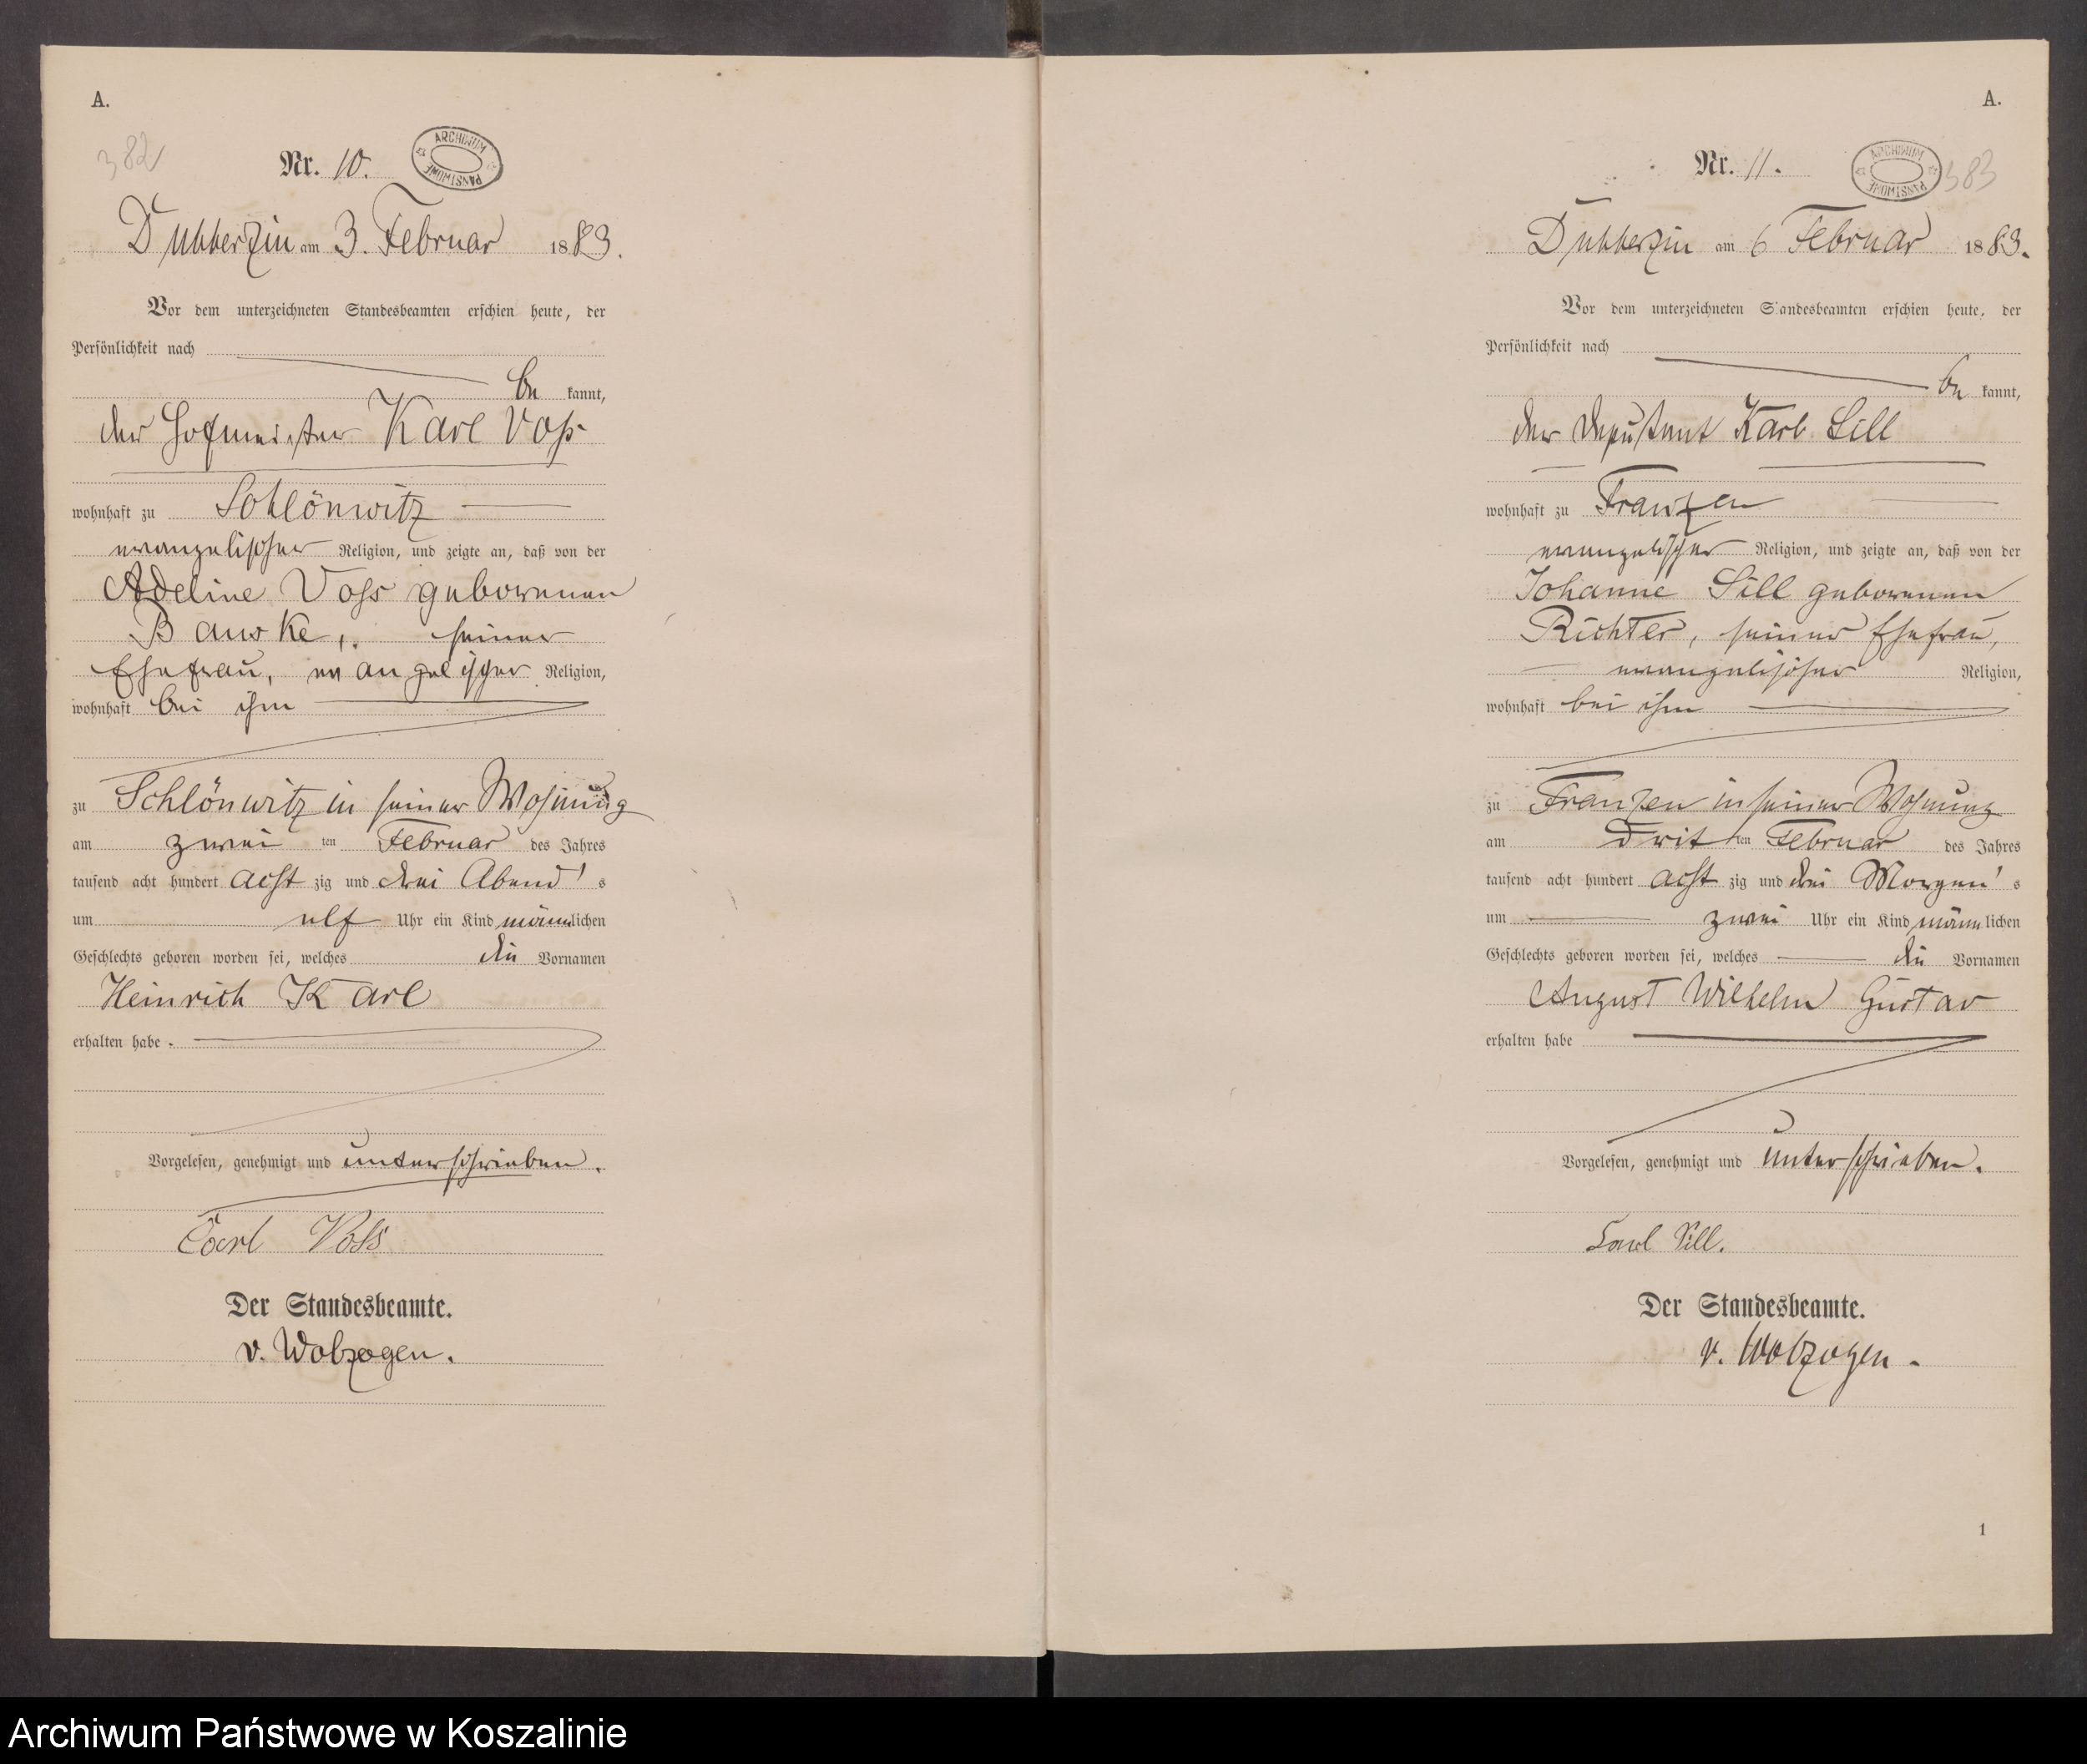 A.
382
Nr. 10.
ARCHIWUM PAŃSTWOWE
Dubberzin am 3. Februar 1883.
Vor dem unterzeichneten Standesbeamten erschien heute, der
Persönlichkeit nach
be kannt,
der Hofmeister Karl Voss
wohnhaft zu Schlönwitz
evangelischer Religion, und zeigte an, daß von der
Adeline Voss geborenen
Banske, seiner
Ehefrau, evangelischer Religion,
wohnhaft bei ihm
zu Schlönwitz in seiner Wohnung
am zwei ten Februar des Jahres
tausend acht hundert acht zig und drei Abend's
um elf Uhr ein Kind männlichen
Geschlechts geboren worden sei, welches die Vornamen
Heinrich Karl
erhalten habe.
Vorgelesen, genehmigt und unterschrieben.
Carl Voss
Der Standesbeamte.
v. Wolzogen.
A.
Nr. 11.
ARCHIWUM PAŃSTWOWE
383
Dubberzin am 6 Februar 1883.
Vor dem unterzeichneten Standesbeamten erschien heute, der
Persönlichkeit nach
be kannt,
der Deputant Karl Sill
wohnhaft zu Franzen
evangelischer Religion, und zeigte an, daß von der
Johanne Sill geborenen
Richter, seiner Ehefrau,
evangelischer Religion,
wohnhaft bei ihm
zu Franzen in seiner Wohnung
am drit ten Februar des Jahres
tausend acht hundert acht zig und drei Morgen's
um zwei Uhr ein Kind männlichen
Geschlechts geboren worden sei, welches die Vornamen
August Wilhelm Gustav
erhalten habe
Vorgelesen, genehmigt und unterschrieben.
Carl Sill.
Der Standesbeamte.
v. Wolzogen.
1
Archiwum Państwowe w Koszalinie